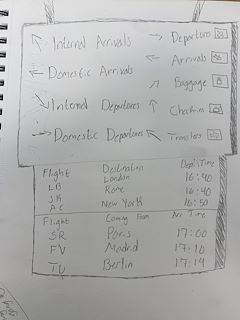 Internal Arrivals
Departures
Domestic Arrivals
Arrivals
Baggage
Internal Departures
Checkins
Domestic Departures
Transfers
Flight Destination Dept Time
LB London 16:40
Rome 16:40
AC New York 16:50
Flight Coming From Arr Time
SR Paris 17:00
FV Madrid 17:10
TU Berlin 17:14